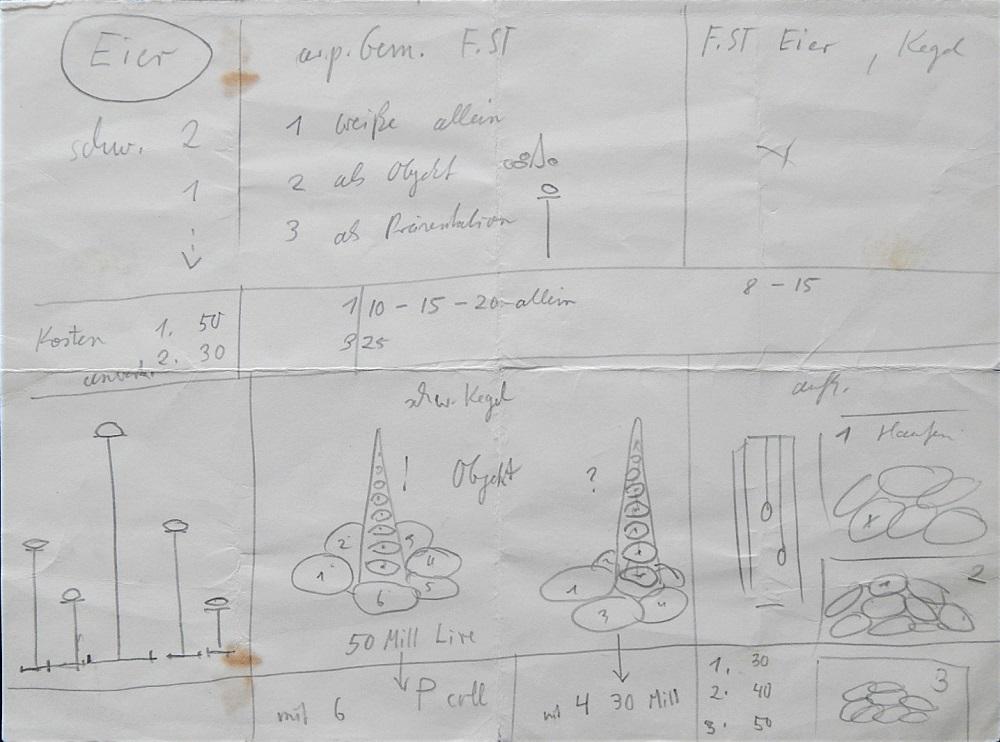 Eier
F.ST
F.ST Eier , Kegel
schw. 2
1
1 weiße allein
2 als Objekt
3 als Präsentation
8 - 15
Kosten 1. 50
2. 30
1 10 - 15 - 20 allein
3 25
schw. Kegel
! Objekt ?
1 Haufen
x
2 1 6 5
1 3
1
2
50 Mill Lire
mit 6
P coll
mit 4 30 Mill
1. 30
2. 40
3. 50
3